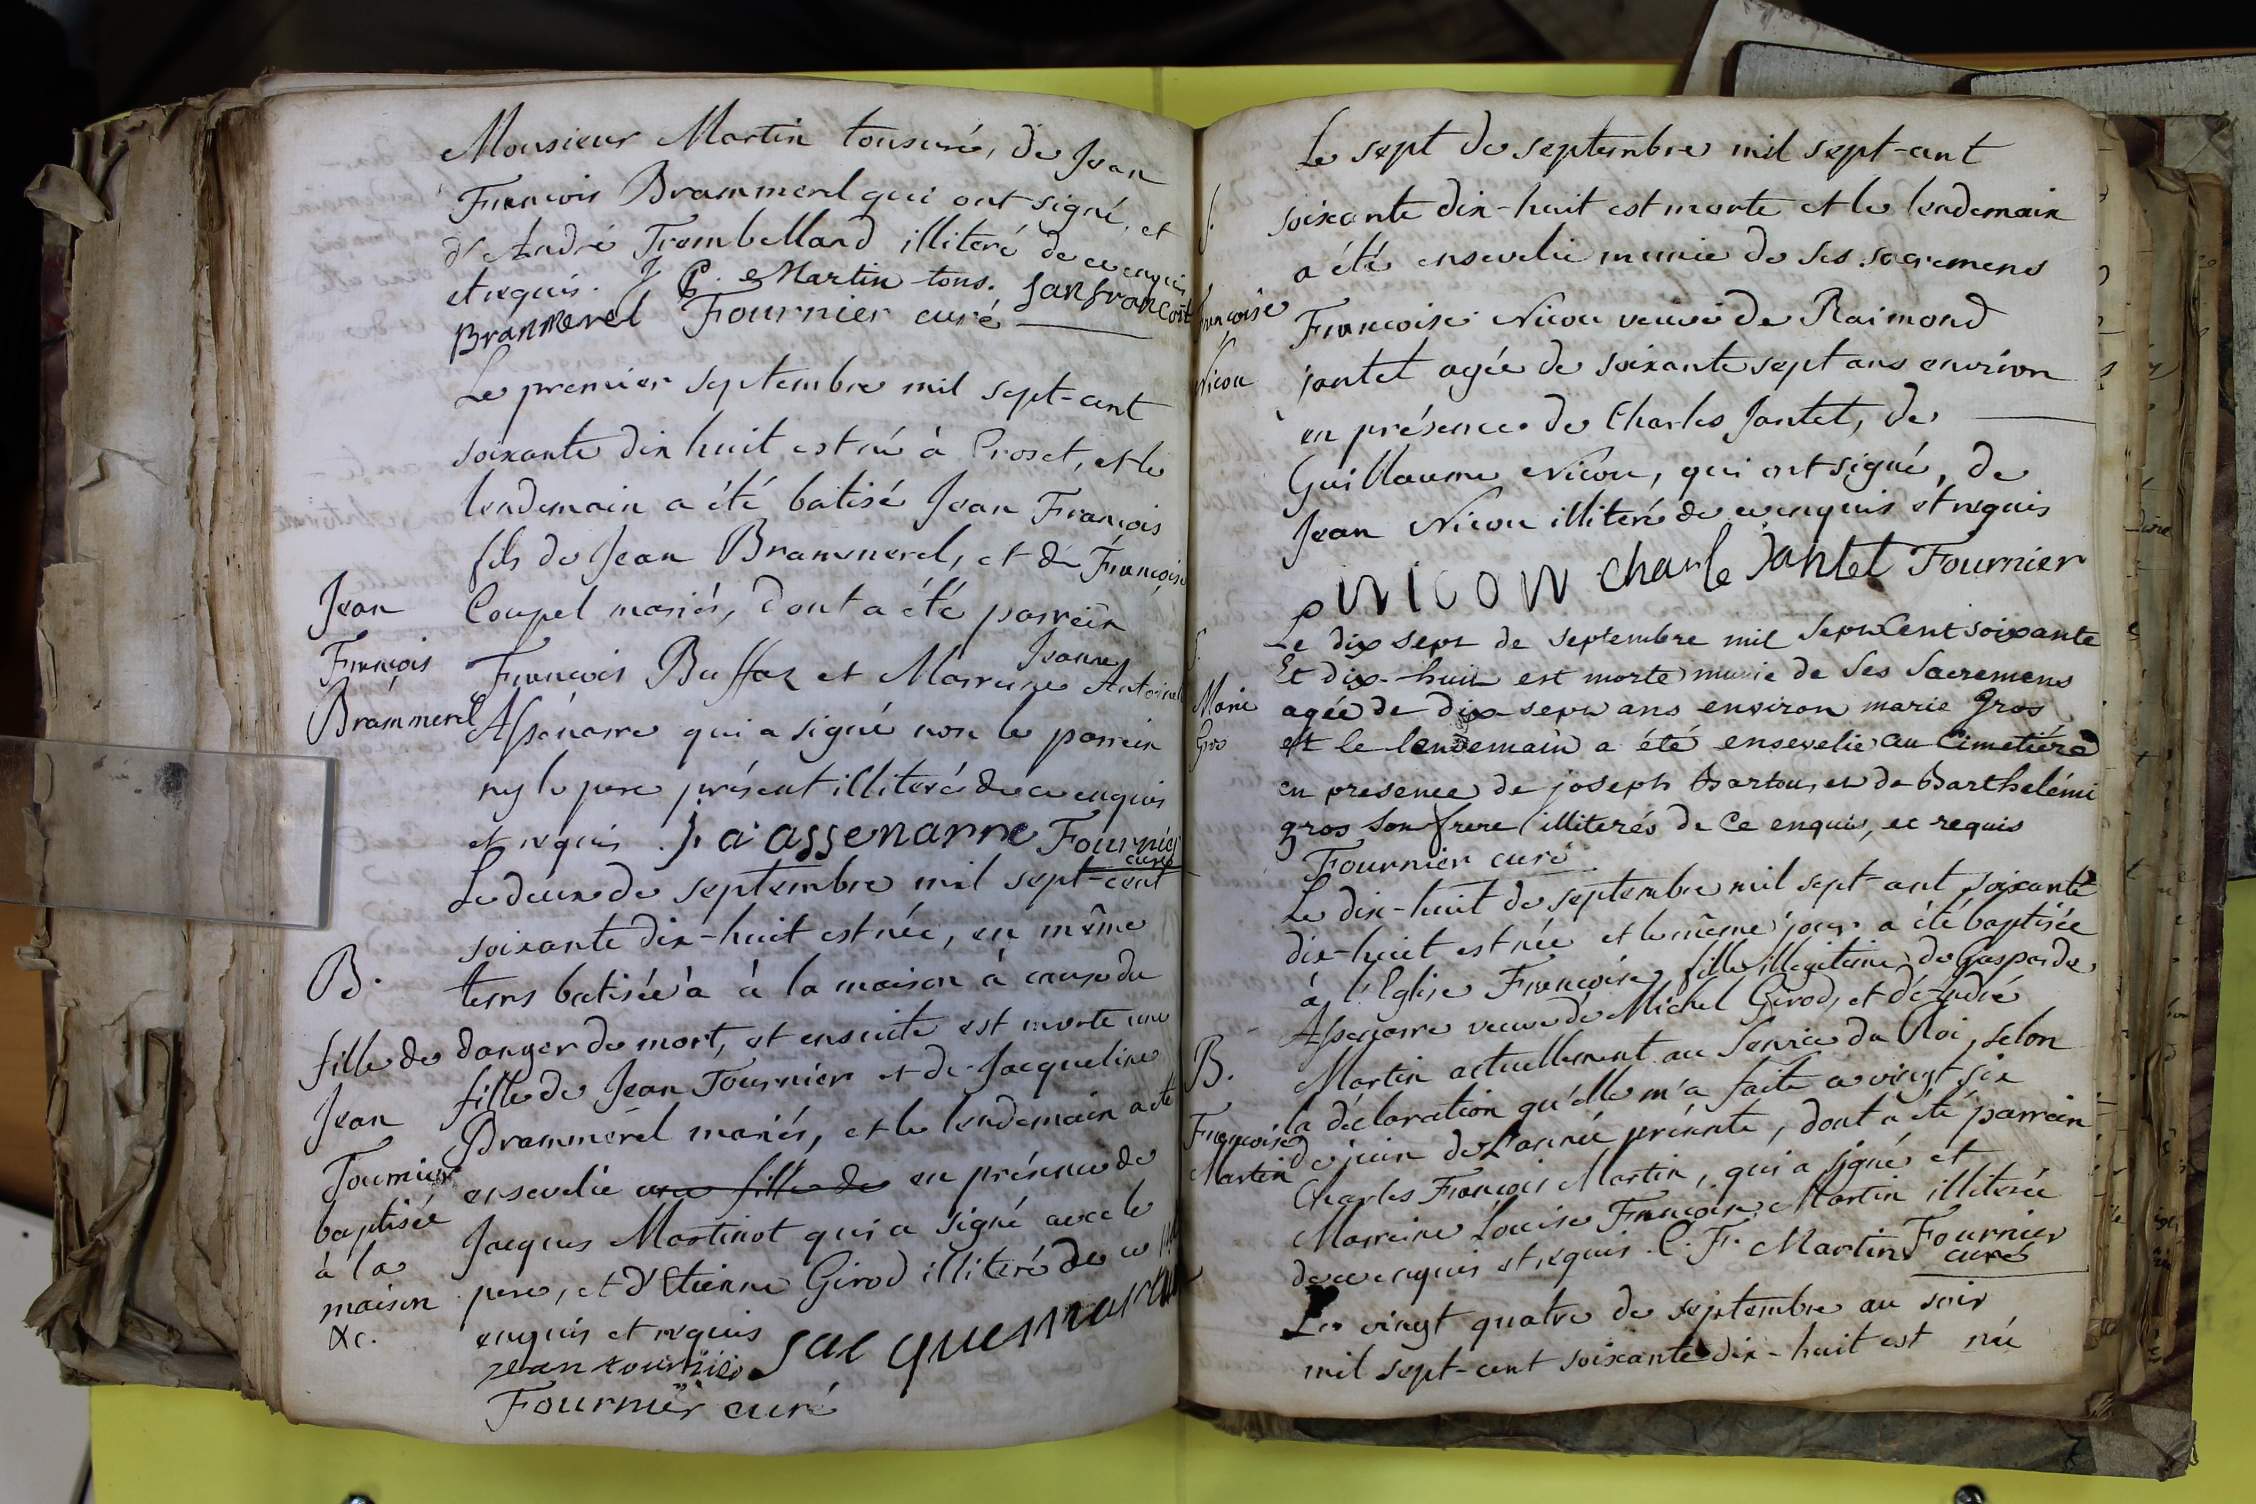 Monsieur Martin tonsuré, de Jean
François Brammerel qui ont signé, et
d'André Trombellard illiteré de ce enquis
et requis. J C. Martin tons. Jan francois
Brammerel Fournier curé
Le premier septembre mil sept-cent
soixante dix huit est né à Croset, et le
lendemain a été batisé Jean François
fils de Jean Brammerel, et de Françoise
Jean
François
Brammerel
Coupel mariés, dont a été parrein
François Buffaz et Marreine Jeanne Antoinette
Assénarre qui a signé non le parrein
ny le pere présent illiterés de ce enquis
et requis. j. a assenarre Fournier
curé
Le deux de septembre mil sept-cent
soixante dix-huit est née, en même
B.
fille de
Jean
Fournier
baptisée
à la
maison
&c.
tems batisée à à la maison à cause du
danger de mort, et ensuite est morte une
fille de Jean Fournier et de Jacqueline
Brammerel mariés, et le lendemain a été
ensevelie une fille de en présence de
Jacques Martinot qui a signé avec le
pere, et d'Etienne Girod illiteré de ce
enquis et requis
jean tournier
Fournier curé
Le sept de septembre mil sept-cent
S.
Françoise
Nicou
soixante dix-huit est morte et le lendemain
a été ensevelie munie de ses sacremens
Françoise Nicou veuve de Raimond
jantet agée de soixante sept ans environ
en présence de Charles Jantet, de
Guillaume Nicou, qui ont signé, de
Jean Nicou illiteré de ce enquis et requis
NICON charle Jantet Fournier
S.
Marie
Gros
Le dix sept de septembre mil sept Cent soixante
Et dix-huit est morte munie de ses Sacremens
agée de dix sept ans environ marie Gros
et le lendemain a été ensevelie au Cimetiére
en presence de joseph Bartou, et de Barthelémi
gros son frere illiterés de ce enquis, et requis
Fournier curé
Le dix-huit de septembre mil sept cent soixante
dix-huit est née et le même jour a été baptisée
à l'Eglise Françoise fille illegitime de Gasparde
Assenarre veuve de Michel Girod, et d'André
B.
Françoise
Martin
Martin actuellement au Service du Roi, selon
la déclaration qu'elle m'a faite ce vingt six
de juin de l'année présente, dont a été parrein
Charles François Martin, qui a signé et
Marreine Louise Françoise Martin illiterée
de ce enquis et requis. C. F. Martin Fournier
curé
Le vingt quatre de septembre au soir
mil sept-cent soixante dix-huit est né